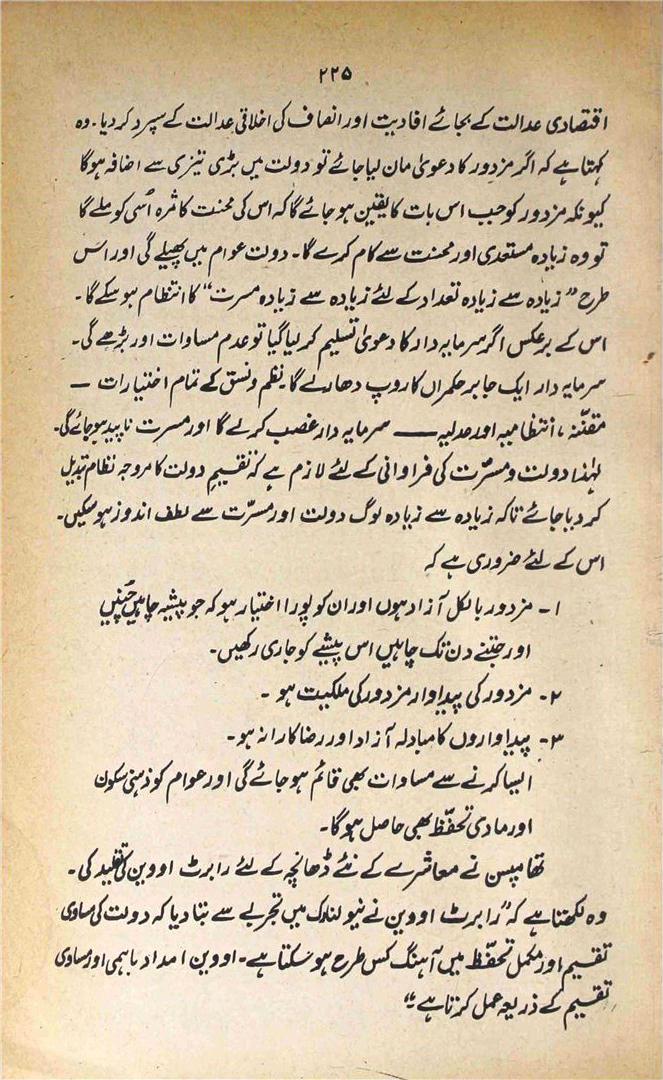 ۲۲۵
اقتصادی عدالت کے بجائے افادیت اور انصاف کی اخلاقی عدالت کے سپرد کر دیا۔ وہ
کہتا ہے کہ اگر مزدور کا دعویٰ مان لیا جائے تو دولت میں بڑی تیزی سے اضافہ ہوگا
کیونکہ مزدور کو جب اس بات کا یقین ہو جائے گا کہ اس کی محنت کا ثمرہ اُسی کو ملے گا
تو وہ زیادہ مستعدی اور محنت سے کام کرے گا۔ دولت عوام میں پھیلے گی اور اس
طرح "زیادہ سے زیادہ تعداد کے لئے زیادہ سے زیادہ مسرت" کا انتظام ہو سکے گا۔
اس کے برعکس اگر سرمایہ دار کا دعویٰ تسلیم کر لیا گیا تو عدم مساوات اور بڑھے گی۔
سرمایہ دار ایک جابر حکمراں کا روپ دھارے گا۔ نظم و نسق کے تمام اختیارات —
مقنّنہ، انتظامیہ اور عدلیہ — سرمایہ دار غصب کر لے گا اور مسرت ناپید ہو جائے گی۔
لہٰذا دولت و مسرّت کی فراوانی کے لئے لازم ہے کہ تقسیمِ دولت کا مروجہ نظام تبدیل
کر دیا جائے تاکہ زیادہ سے زیادہ لوگ دولت اور مسرّت سے لطف اندوز ہو سکیں۔
اس کے لئے ضروری ہے کہ
۱۔ مزدور بالکل آزاد ہوں اور ان کو پورا اختیار ہو کہ جو پیشہ چاہیں چُنیں
اور جتنے دن تک چاہیں اس پیشے کو جاری رکھیں۔
۲۔ مزدور کی پیداوار مزدور کی ملکیت ہو۔
۳۔ پیداواروں کا مبادلہ آزاد اور رضاکارانہ ہو۔
ایسا کرنے سے مساوات بھی قائم ہو جائے گی اور عوام کو ذہنی سکون
اور مادی تحفّظ بھی حاصل ہوگا۔
تھامپسن نے معاشرے کے نئے ڈھانچہ کے لئے رابرٹ اووین کی تقلید کی۔
وہ لکھتا ہے کہ "رابرٹ اووین نے نیو لنارک میں تجربے سے بتا دیا کہ دولت کی مساوی
تقسیم اور مکمل تحفّظ میں آہنگ کس طرح ہو سکتا ہے۔ اووین امداد باہمی اور مساوی
تقسیم کے ذریعہ عمل کرتا ہے۔"